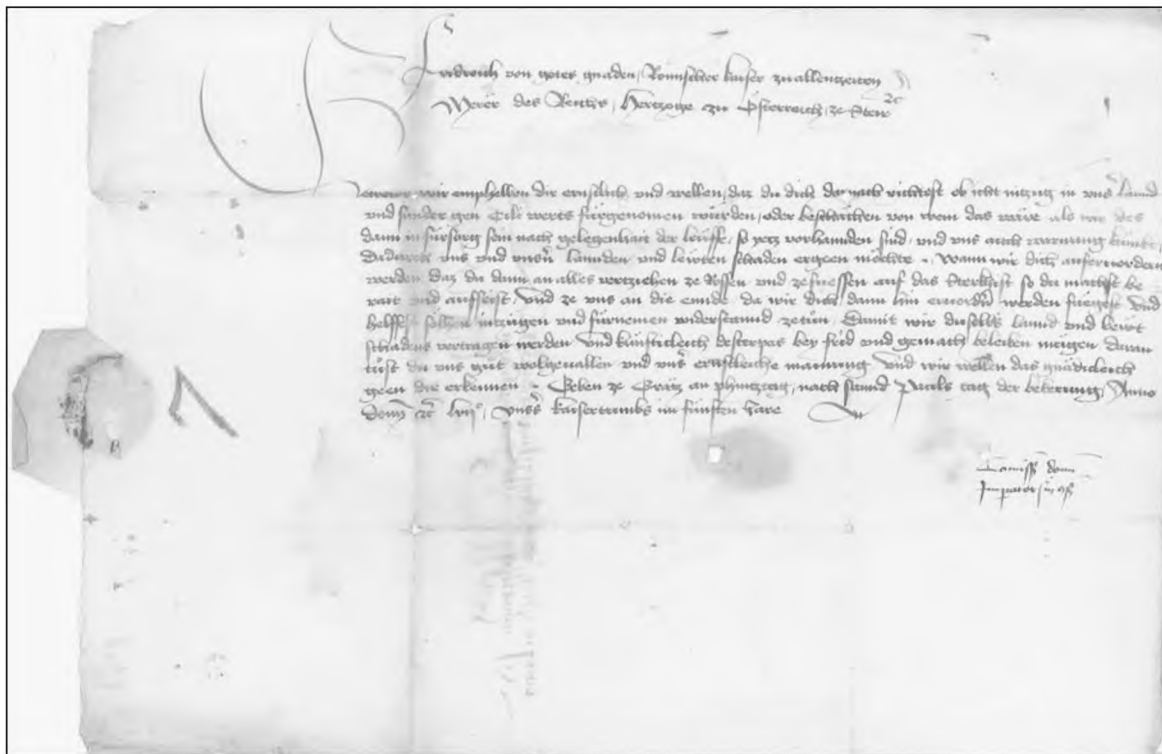 Fridreich von gotes gnaden, Romischer kaiser zuallenczeiten
Merer des Reichs, Herczoge zu Österreich, ze Steir etc
wir emphelhen dir ernstlich und wellen, daz du dich darnach richtest ob icht inczüg in unser Lannd
und sunder gen Cili werts fürgenomen würden, oder beschehen von wem das wäre als wir des
dann in fürsorg sein nach gelegenhait der leüffe, so yecz vorhannden sind, und uns auch warnung kümbt,
dadurch uns und unsern Lannden und lewten schaden ergeen möchte, wann wir dich anfervordern
werden, daz du dann an alles verczichen ze Rossen und ze fuessen auf das Sterkhist so du machst be
rait und auffseist, Und ze uns an die ennde da wir dich dann hin ervordern werden fuegest Und
helffest sölhen inczügen und fürnemen widerstannd zetün, Damit wir dieselb Lannd und lewt
schadens vertragen werden Und künfticleich desterpas bey frid und gemach beleiben mügen, daran
tüst du uns güt wolgevallen und unser ernstleiche maynung Und wir wellen das gnädicleich
gen dir erkennen. Geben ze Gräcz an phincztag, nach sannd Pauls tag der bekerung, Anno
domini etc lvii°, Unsers kaisertumbs im fünften Jare
Commissio domini
Imperatoris in